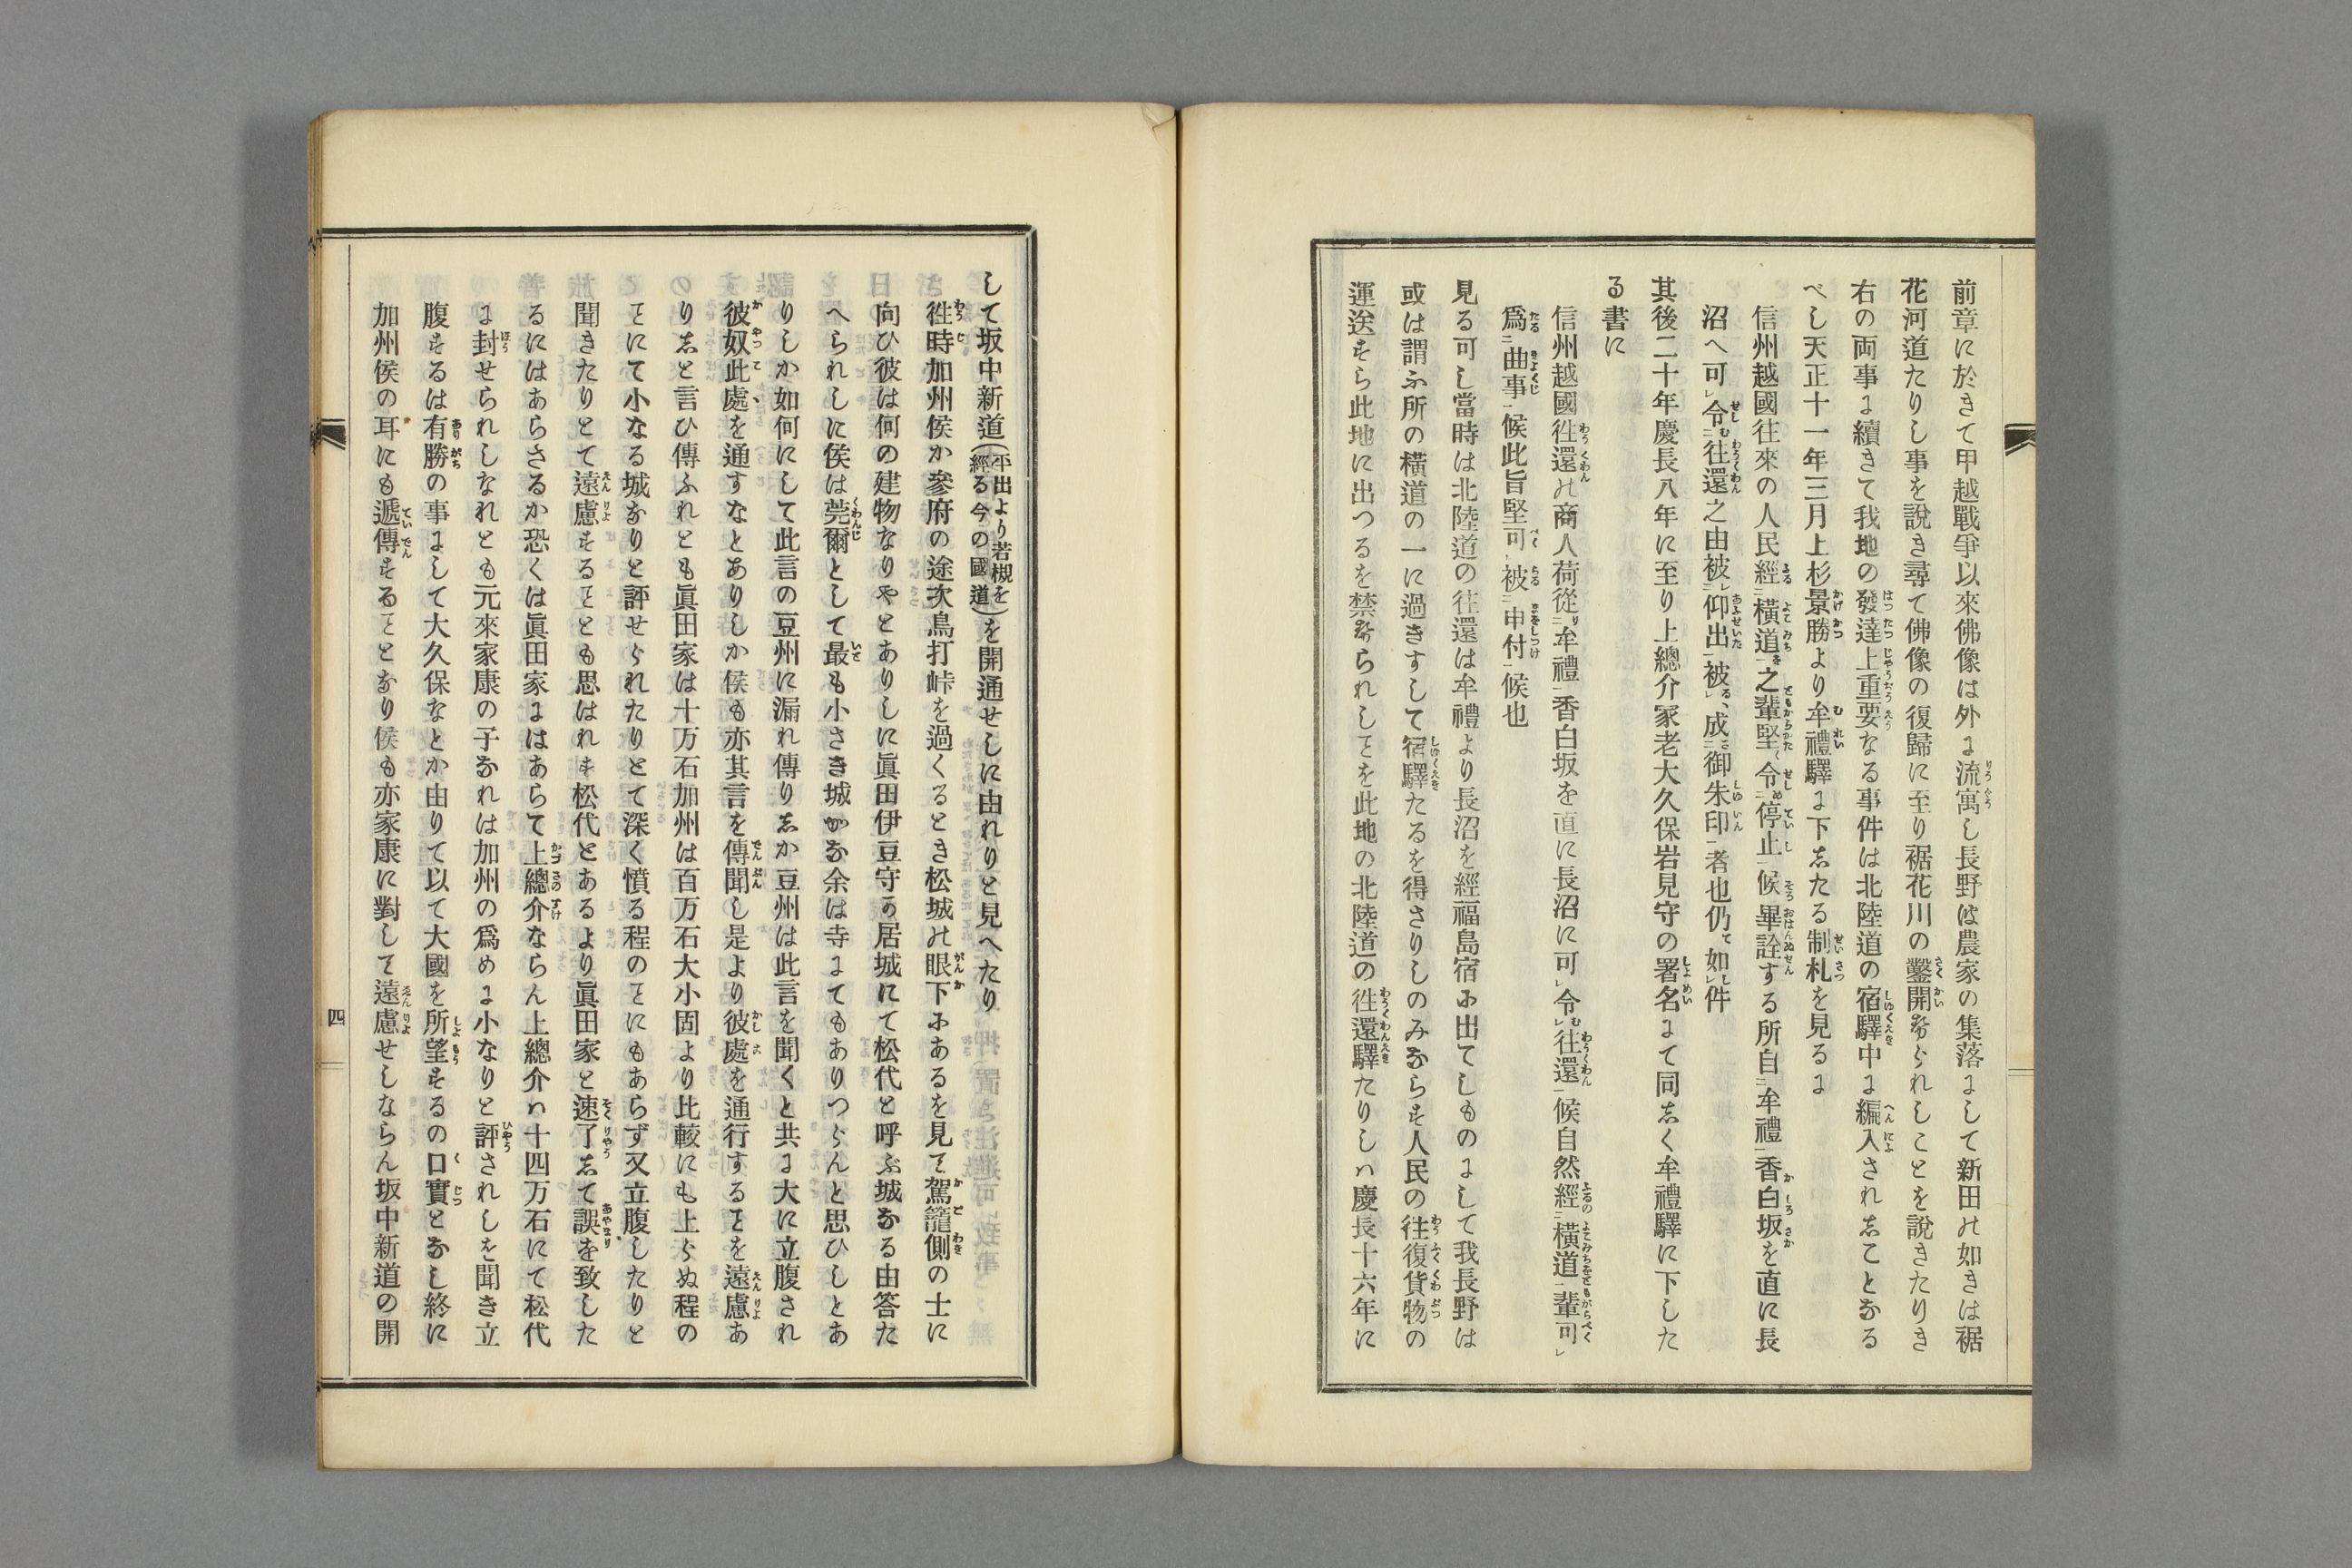 前章に於きて甲越戰爭以來佛像は外に流寓し長野は農家の集落にして新田の如きは裾
花河道たりし事を說き尋て佛像の復歸に至り裾花川の鑿開せられしことを說きたりき
右の両事に續きて我地の發達上重要なる事件は北陸道の宿驛中に編入されしことなる
べし天正十一年三月上杉景勝より牟禮驛に下したる制札を見るに
信州越國往來の人民經二橫道一之輩堅令二停止一候畢詮する所自二牟禮一香白坂を直に長
沼へ可レ令二往還一之由被二仰出一被レ成二御朱印一者也仍て如レ件
其後二十年慶長八年に至り上總介家老大久保岩見守の署名にて同しく牟禮驛に下した
る書に
信州越國徃還の商人荷從二牟禮一香白坂を直に長沼に可レ令二往還一候自然經二橫道一輩可レ
爲二曲事一候此旨堅可レ被二申付一候也
見る可し當時は北陸道の往還は牟禮より長沼を經福島宿に出てしものにして我長野は
或は謂ふ所の橫道の一に過きすして宿驛たるを得さりしのみならす人民の往復貨物の
運送すら此地に出つるを禁せられしことを此地の北陸道の徃還驛たりしハ慶長十六年に
して坂中新道(平出より若槻を經る今の國道)を開通せしに由れりと見へたり
徃時加州侯か參府の途次鳥打峠を過くるとき松城の眼下にあるを見て駕籠側の士に
向ひ彼は何の建物なりやとありしに眞田伊豆守の居城にて松代と呼ふ城なる由答た
へられしに侯は莞爾として最も小さき城かな余は寺にてもありつらんと思ひしとあ
りしか如何にして此言の豆州に漏れ傳りしか豆州は此言を聞くと共に大に立腹され
彼奴此處を通すなとありしか侯も亦其言を傳聞し是より彼處を通行することを遠慮あ
りしと言ひ傳ふれとも眞田家は十万石加州は百万石大小固より比較にも上らぬ程の
ことにて小なる城なりと評せられたりとて深く憤る程のことにもあらず又立腹したりと
聞きたりとて遠慮することとも思はれす松代とあるより眞田家と速了して誤を致した
るにはあらさるか恐くは眞田家にはあらて上總介ならん上總介ハ十四万石にて松代
に封せられしなれとも元來家康の子なれは加州の爲めに小なりと評されしを聞き立
腹するは有勝の事にして大久保なとか由りて以て大國を所望するの口實となし終に
加州侯の耳にも遞傳することとなり侯も亦家康に對して遠慮せしならん坂中新道の開
四